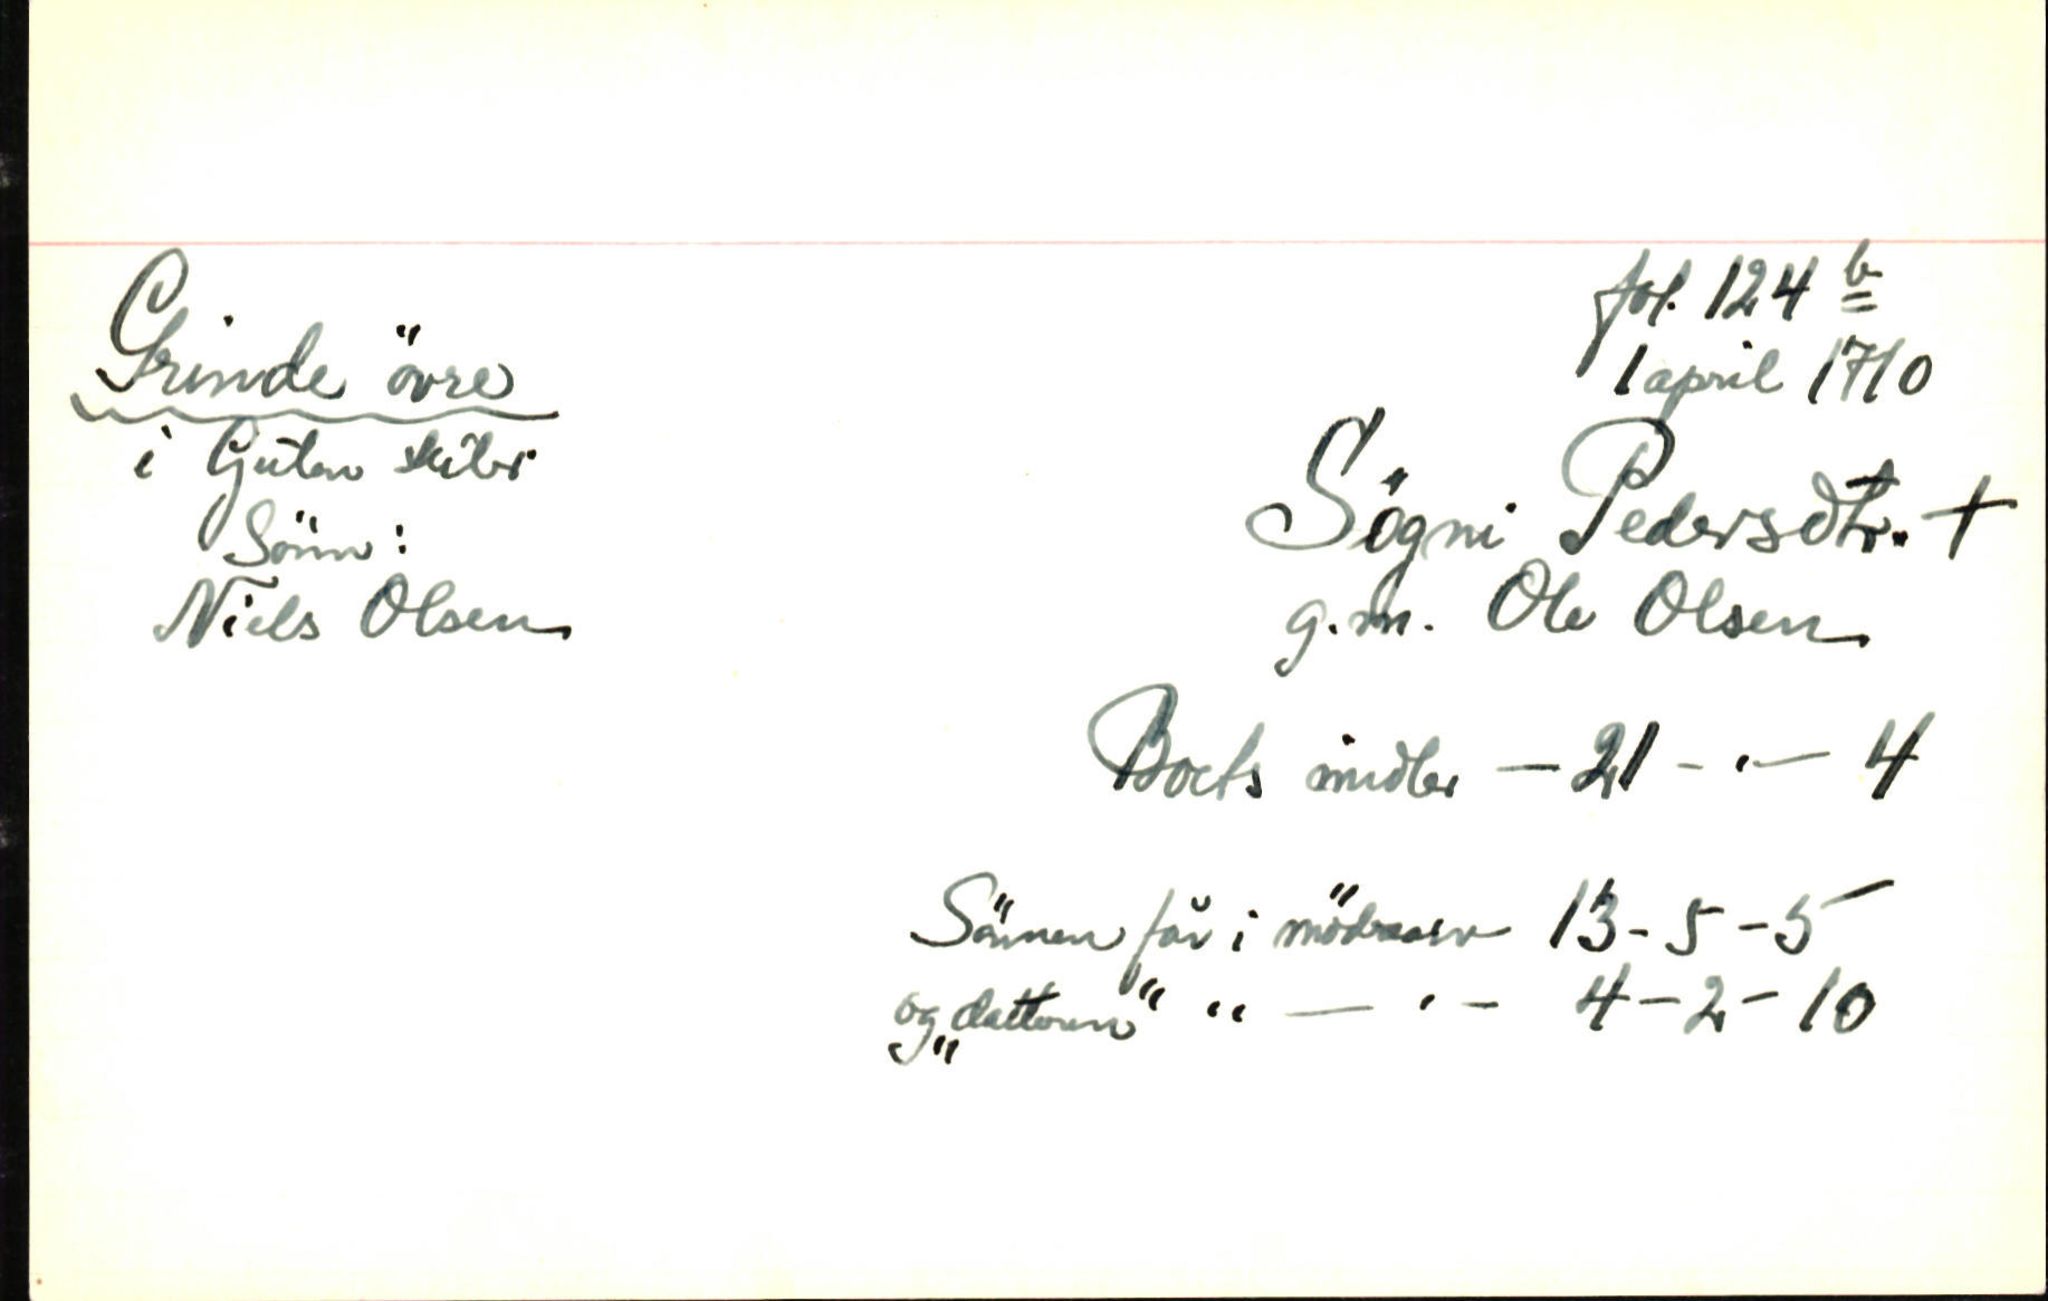 fol. 124 b
Grinde övre
1 april 1710
i Guten skibr.
Sögni Pedersdtr. +
Sönn:
g.m. Ole Olsen
Niels Olsen
Boets midler — 21 - " — 4
Sönnen får i mödrearv 13 - 5 - 5
og "datteren" " — " — 4 - 2 - 10